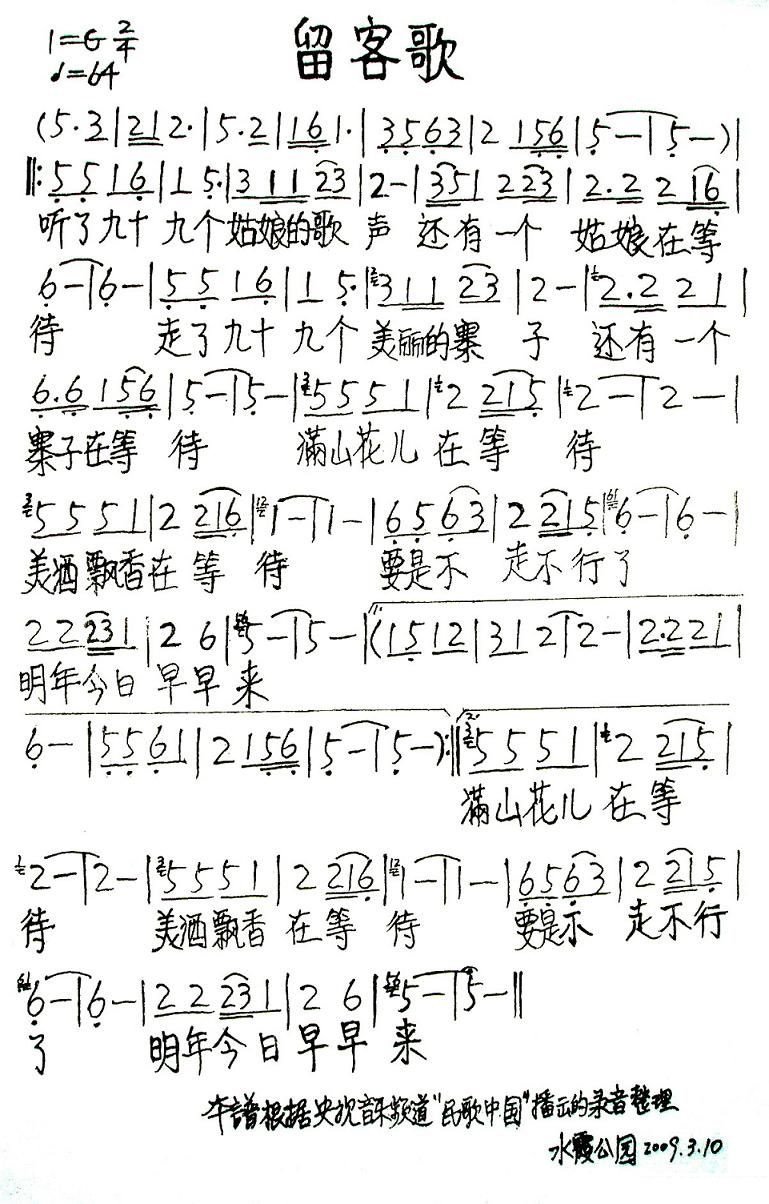 留客歌
1=G 2/4
♩=64
(5·3|21 2·|5·2|16 1·|3563|2 156|5-|5-)|
‖:5516|1 5·|3 11 23|2-|351 223|2·2 216|
听了九十 九个 姑娘的歌 声 还有一个 姑娘在等
6-|6-|5516|1 5·|311 23|2-|2·2 21|
待 走了九十 九个 美丽的寨 子 还有一个
6·6 156|5-|5-|5551|2 215|2-|2-|
寨子在等 待 满山花儿 在等 待
5551|2 216|1-|1-|6563|2 215|6-|6-|
美酒飘香在等 待 要是不 走不行了
22231|2 6|5-|5-|(1512|312|2-|2·221|
明年今日 早早 来
6-|5561|2 156|5-|5-):‖5551|2 215|
满山花儿 在等
2-|2-|5551|2 216|1-|1-|6563|2 215|
待 美酒飘香 在等 待 要是不 走不行
6-|6-|22231|2 6|5-|5-‖
了 明年今日早早 来
本谱根据央视音乐频道"民歌中国"播出的录音整理
水霞公园2009.3.10